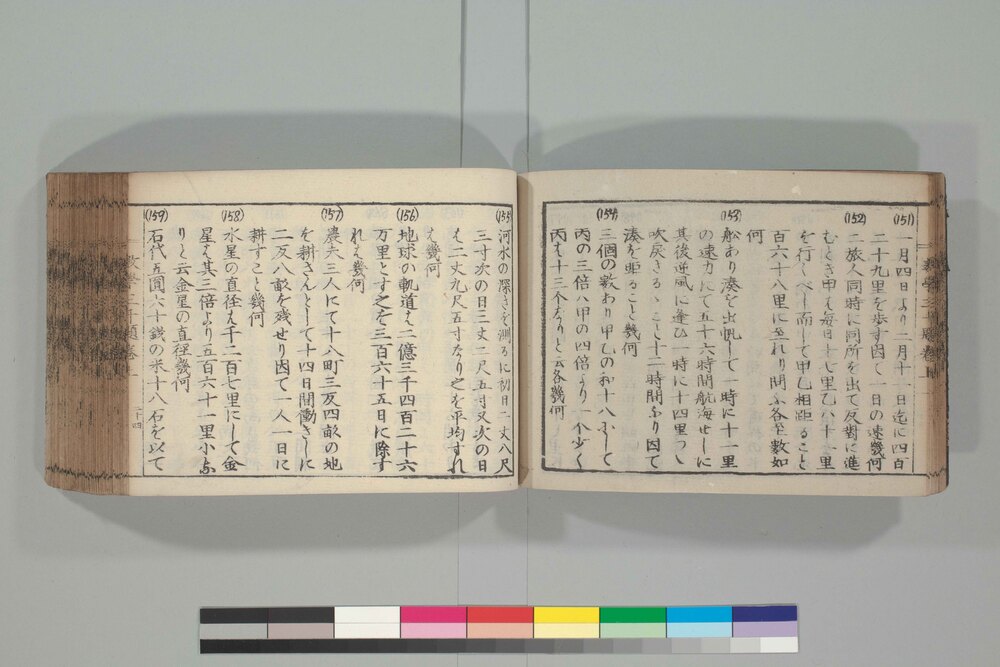 (151)
一月四日より二月十一日迄に四百
二十九里を歩す因て一日の速幾何
(152)
二旅人同時に同所を出て反對に進
むとき甲は毎日十七里乙八十一里
を行くべし而して甲乙相距ること
百六十八里に至れり問ふ各日数如
何
(153)
舩あり湊を出帆して一時に十一里
の速力にて五十六時間航海せしに
其後逆風に逢ひ一時に十四里つゝ
吹戻さるゝこと十二時間なり因て
湊を距ること幾何
(154)
三個の数あり甲乙の和十八にして
丙の三倍ハ甲の四倍より一个少く
丙は十三个なりと云各幾何
(155)
河水の深さを測るに初日二丈八尺
三寸次の日三丈二尺五寸又次の日
は二丈九尺五寸なり之を平均すれ
は幾何
(156)
地球の軌道は二億三千四百二十六
万里とす之を三百六十五日に除す
れは幾何
(157)
農夫三人にて十八町三反四畝の地
を耕さんとして十四日間働きしに
二反八畝を残せり因て一人一日に
耕すこと幾何
(158)
水星の直径は千二百七里にして金
星は其三倍より五百六十一里小な
りと云金星の直径幾何
(159)
石代五圓六十錢の米十八石を以て